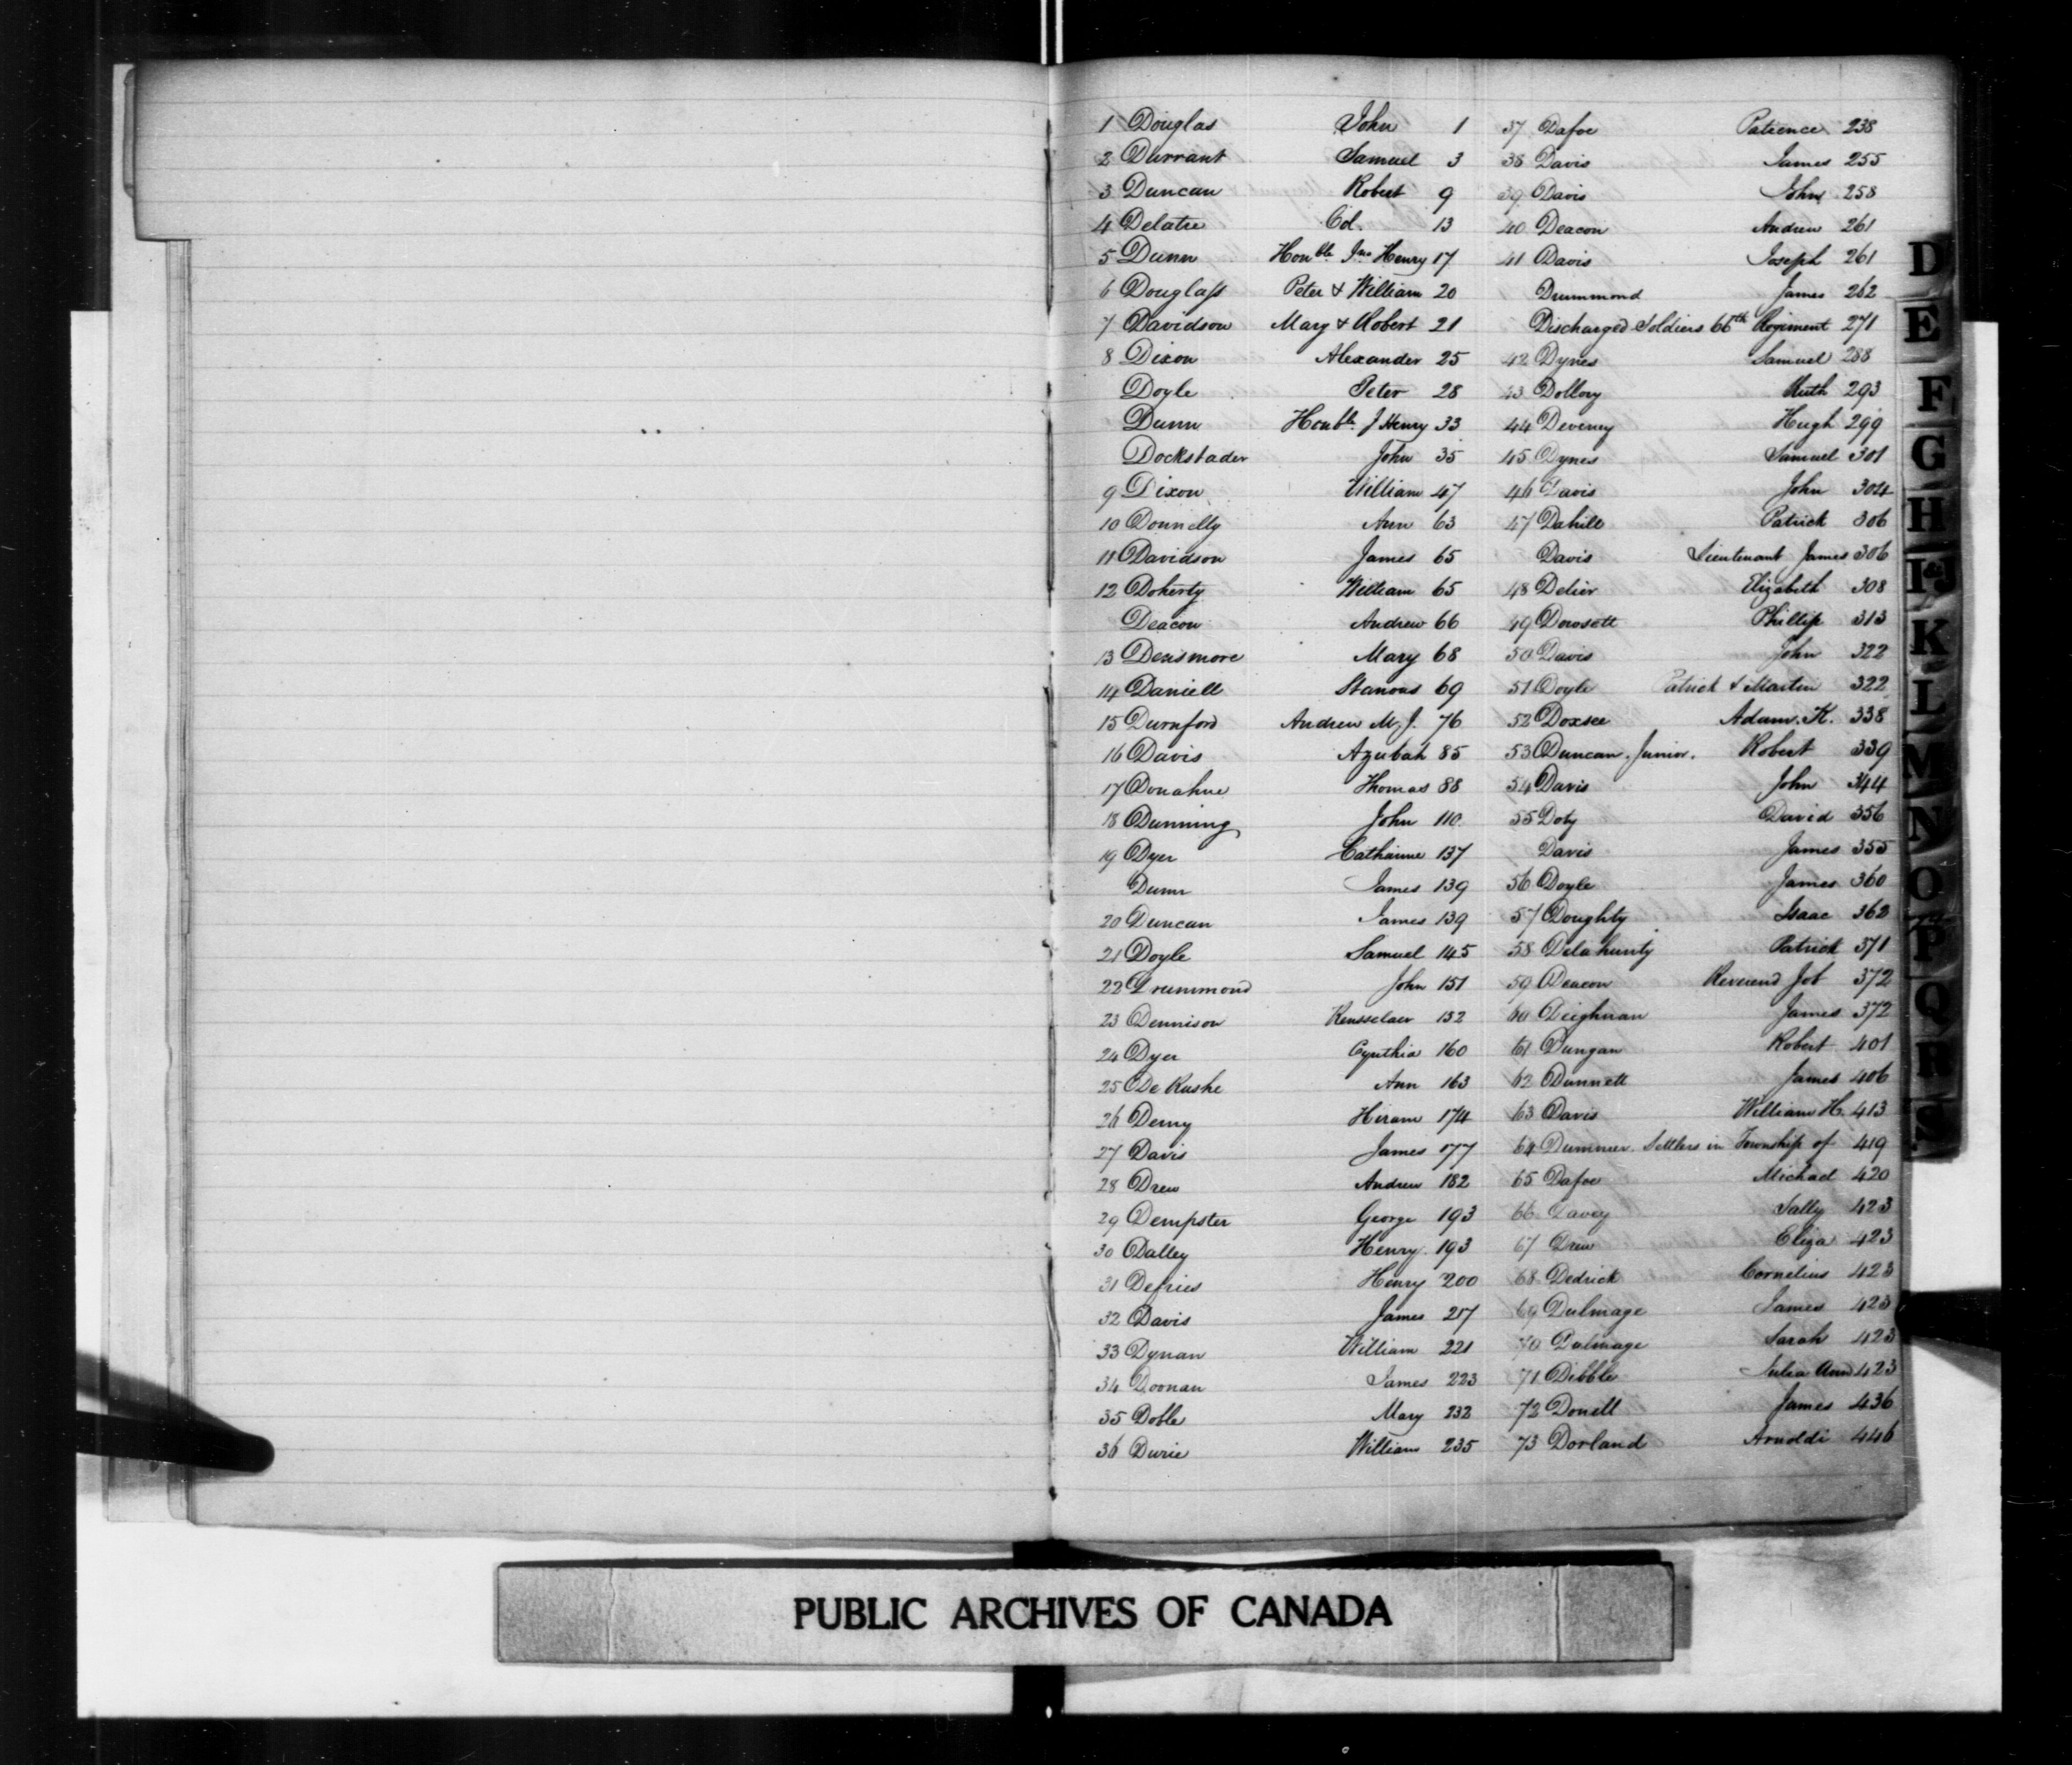 1 Douglas John 1
2 Durrant Samuel 3
3 Duncan Robert 9
4 Delatre Col. 13
5 Dunn Honble Jno Henry 17
6 Douglass Peter & William 20
7 Davidson Mary & Robert 21
8 Dixon Alexander 25
Doyle Peter 28
Dunn Honble J Henry 33
Dockstader John 35
9 Dixon William 47
10 Donnelly Ann 63
11 Davidson James 65
12 Doherty William 65
Deacon Andrew 66
13 Densmore Mary 68
14 Daniell 69
15 Durnford Andrew M. J. 76
16 Davis Azubah 85
17 Donahue Thomas 88
18 Dunning John 110
19 Dyer Catharine 137
Dunn James 139
20 Duncan James 139
21 Doyle Samuel 145
22 Drummond John 151
23 Dennison Rensselaer 152
24 Dyer Cynthia 160
25 De Rushe Ann 163
26 Denny Hiram 174
27 Davis James 177
28 Drew Andrew 182
29 Dempster George 193
30 Dalley Henry 193
31 Defries Henry 200
32 Davis James 217
33 Dynan William 221
34 Doonan James 223
35 Doble Mary 232
36 Durie William 235
37 Dafoe Patience 238
38 Davis James 255
39 Davis John 258
40 Deacon Andrew 261
41 Davis Joseph 261
Drummond James 262
Discharged Soldiers 66th Regiment 271
42 Dynes Samuel 288
43 Dollory Ruth 293
44 Deveney Hugh 299
45 Dynes Samuel 301
46 Davis John 304
47 Dahill Patrick 306
Davis Lieutenant James 306
48 Delier Elizabeth 308
49 Dowsett Phillip 313
50 Davis John 322
51 Doyle Patrick & Martin 322
52 Doxsee Adam. K. 338
53 Duncan, Junior. Robert 339
54 Davis John 344
55 Doty David 356
Davis James 355
56 Doyle James 360
57 Doughty Isaac 362
58 Delahunty Patrick 371
59 Deacon Reverend Job 372
60 Deighnan James 372
61 Dungan Robert 401
62 Dunnett James 406
63 Davis William H. 413
64 Dummer. Settlers in Township of 419
65 Dafoe Michael 420
66 Davey Sally 423
67 Drew Eliza 423
68 Dedrick Cornelius 423
69 Dulmage James 423
70 Dulmage Sarah 423
71 Dibble Julia Ann 423
72 Donell James 436
73 Dorland Arnoldi 446
D
E
F
G
H
I&J
K
L
M
N
O
P
Q
R
S
PUBLIC ARCHIVES OF CANADA